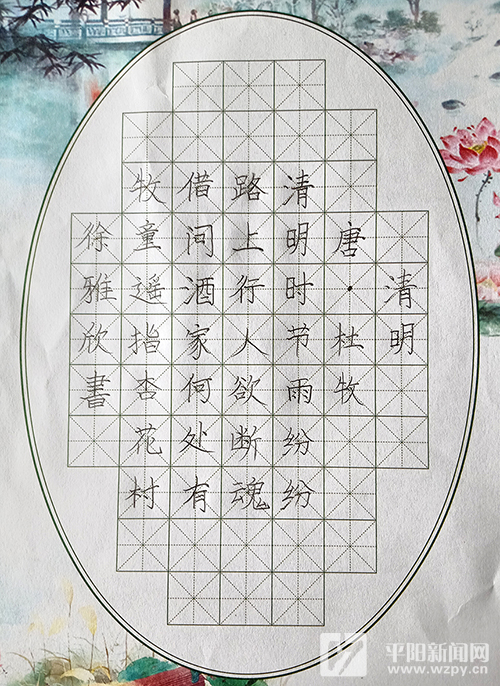 清明
唐·杜牧
清明时节雨纷纷
路上行人欲断魂
借问酒家何处有
牧童遥指杏花村
徐雅欣書
平阳新闻网
www.wzpy.cn